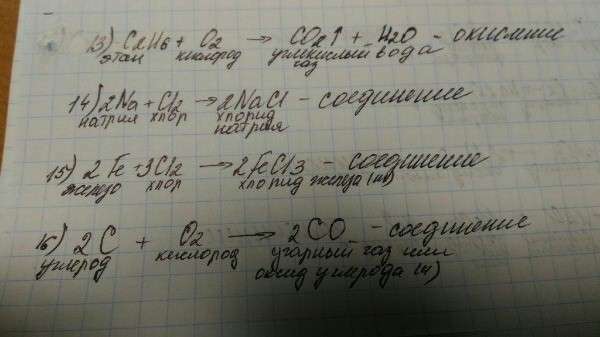 13) C2H6 + O2 → CO2↑ + H2O - окисление
этан кислород углекислый вода
газ
14) 2Na + Cl2 → 2NaCl - соединение
натрий хлор хлорид
натрия
15) 2Fe + 3Cl2 → 2FeCl3 - соединение
железо хлор хлорид железа (III)
16) 2C + O2 → 2CO - соединение
углерод кислород угарный газ или
оксид углерода (II)